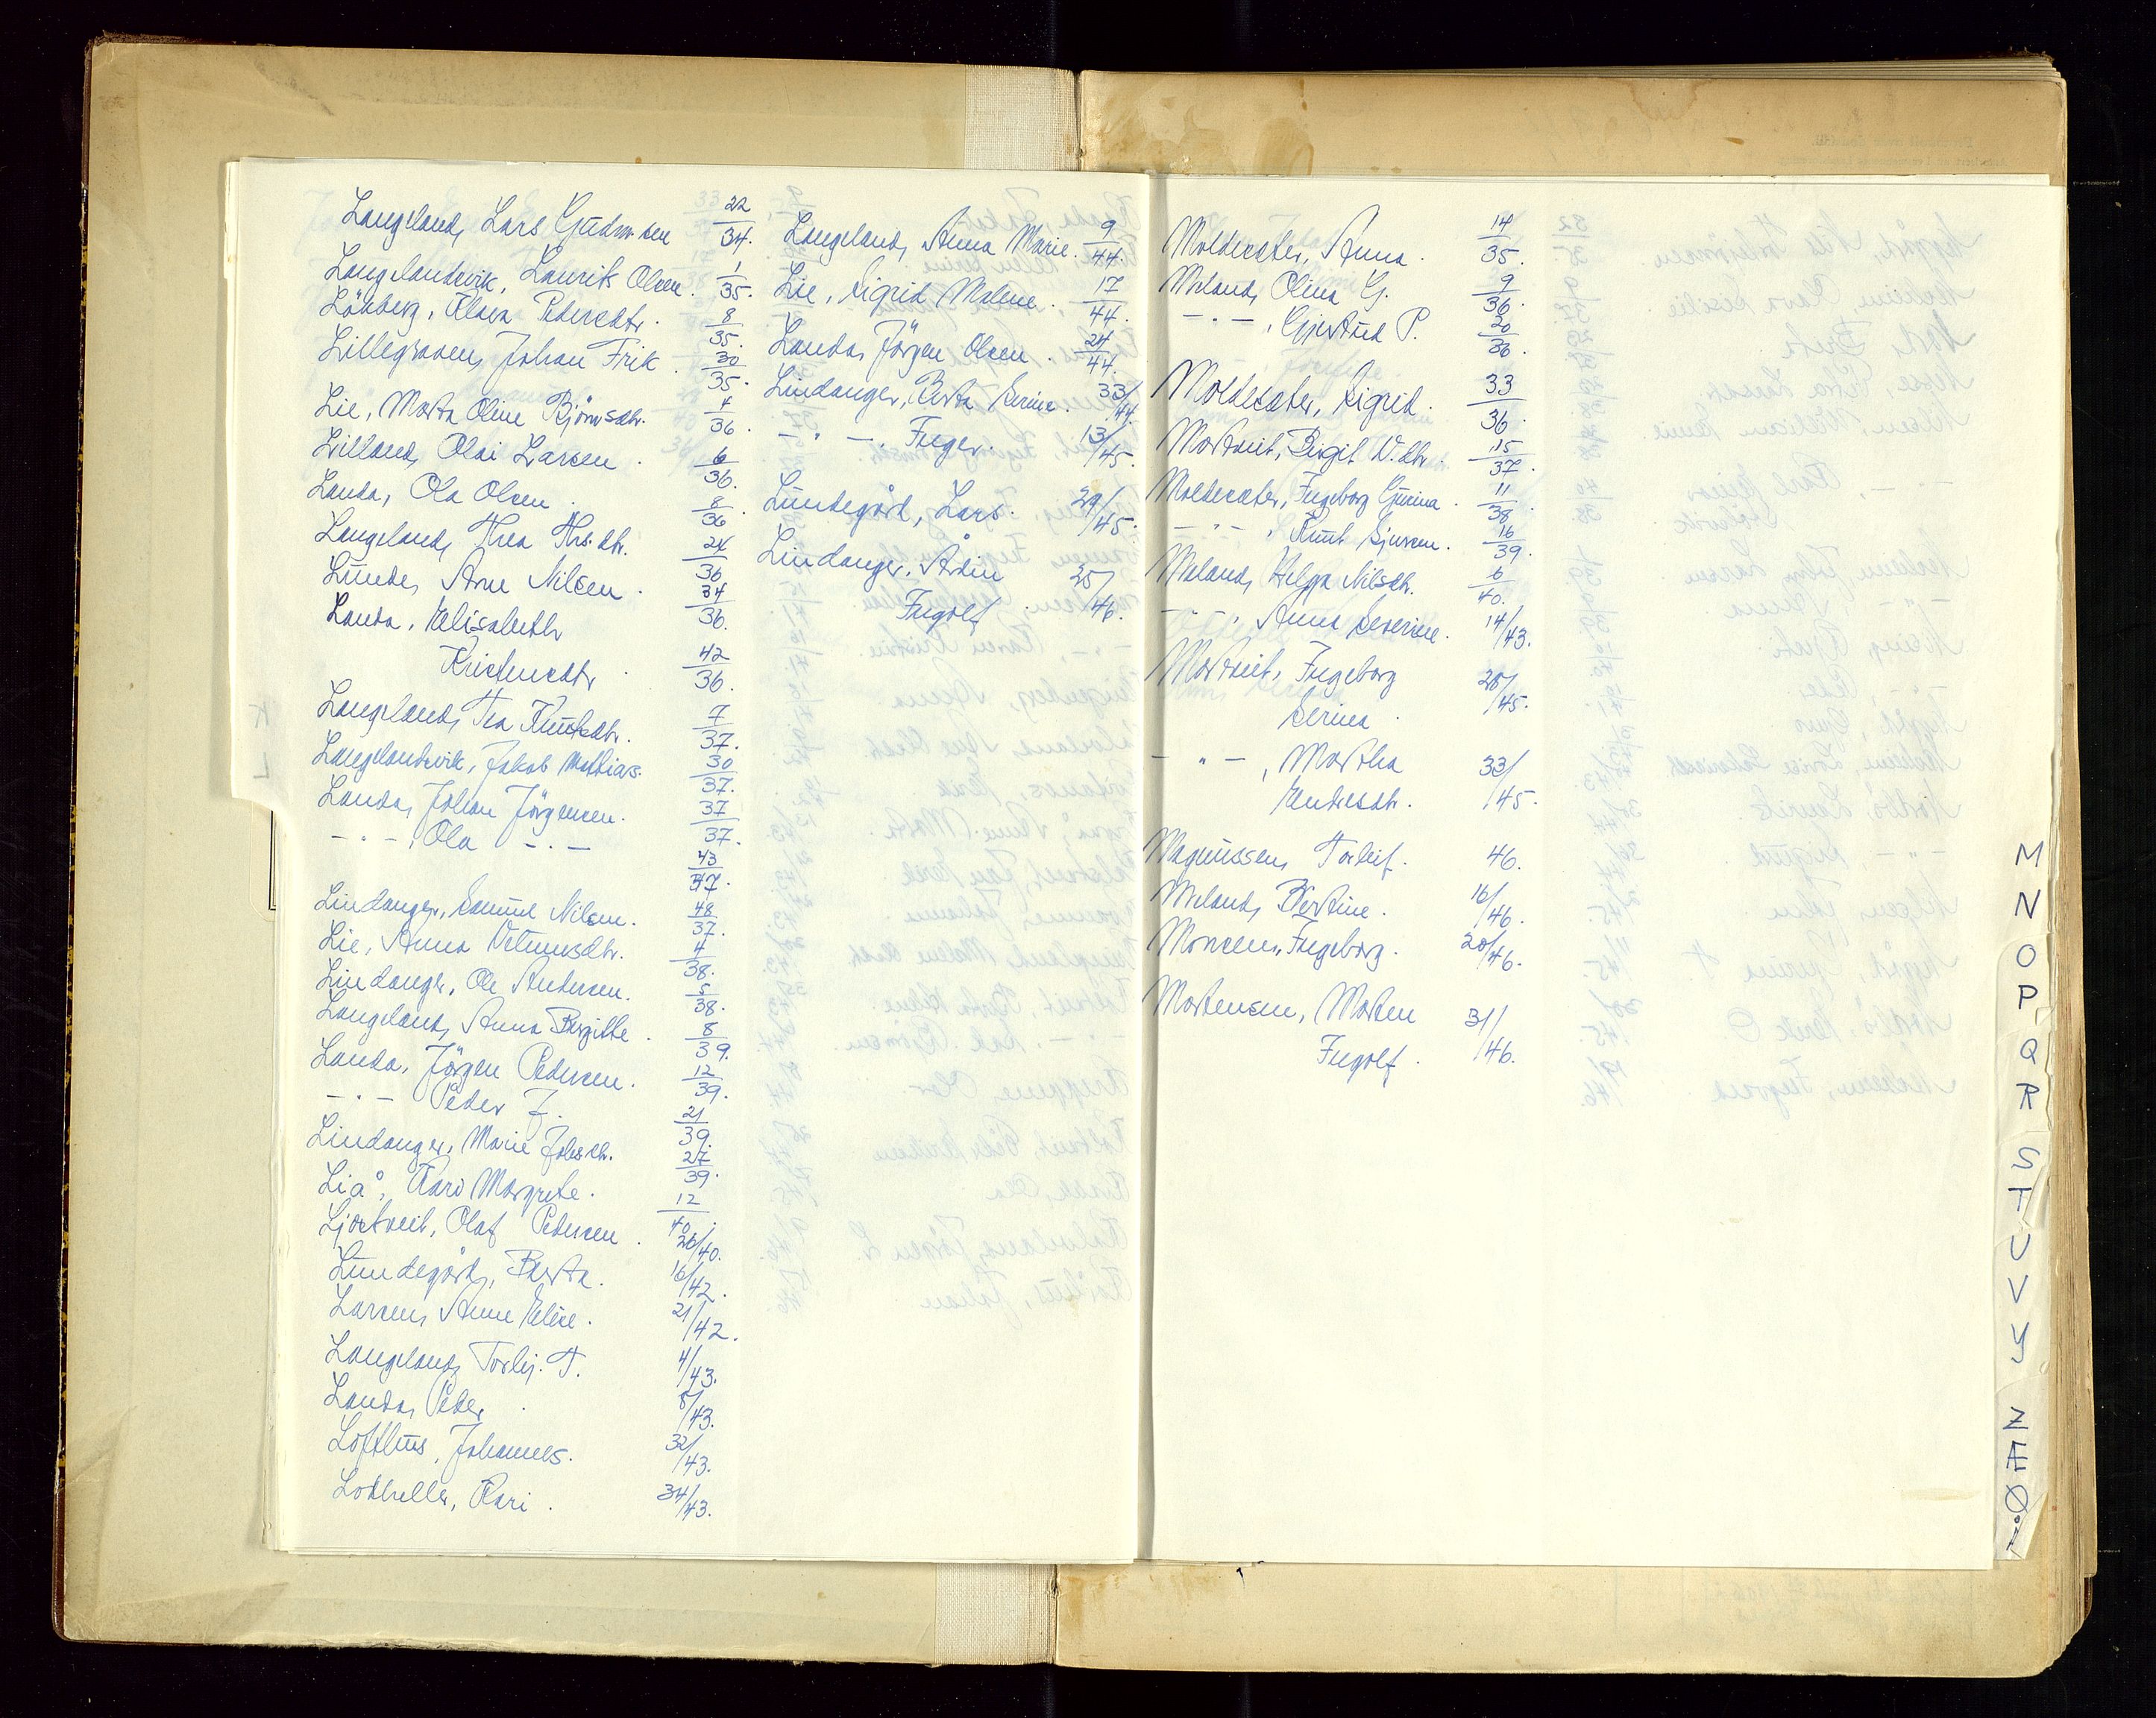 Langeland, Lars Gudm.sen 22/34.
Langelandsvik, Laurits Olsen. 1/35.
Lökberg, Klara Pedersdtr. 8/35.
Lillegraven, Johan Frik. 30/35.
Lie, Marta Oline Björnsdtr. 4/36.
Lilland, Olai Larsen. 6/36.
Landa, Ola Olsen. 8/36
Langeland, Thea Ths.dtr. 24/36
Lunde, Arne Nilsen. 34/36.
Landa, Elisabeth
Kristensdtr. 42/36.
Langeland, Tea Knutsdtr. 7/37.
Langelandsvik, Jakob Mathias. 30/37.
Landa, Johan Jörgensen. 37/37.
- " - , Ola - " - 43/37.
Lindanger, Samuel Nilsen. 48/37.
Lie, Anna Vetmusdtr. 4/38.
Lindanger, Ole Andersen. 5/38.
Langeland, Anna Birgitte. 8/39.
Landa, Jörgen Pedersen. 12/39.
- " - Peder J. 21/39.
Lindanger, Marie Johs.dtr. 27/39.
Liå, Karo Margrete. 12/40.
Ljostveit, Olaf Pedersen. 26/40.
Lundegård, Berta. 16/42.
Larsen, Anne Elise. 21/42.
Langeland, Torleif. T. 4/43.
Landa, Peder. 8/43.
Lofthus, Johannes. 32/43.
Lothellen, Kari. 34/43.
Langeland, Anna Marie. 9/44.
Lie, Sigrid Malene. 17/44.
Landa, Jörgen Olsen. 24/44.
Lindanger, Berta Serine. 33/44.
- " - , Inger. 13/45.
Lundegård, Lars. 29/45.
Lindanger, Ådin
Ingolf. 25/46.
Moldesæter, Anna. 14/35.
Meland, Olina G. 9/36.
- " - , Gjertrud P. 20/36.
Moldesæter, Sigrid. 33/36.
Mortveit, Birgit V.dtr. 15/37.
Moldesæter, Ingeborg Gurina. 11/38
- " - , Knut Sjursen. 16/39.
Meland, Helga Nilsdtr. 6/40.
- " - , Anna Severine. 14/43.
Mortveit, Ingeborg
Serina. 28/45.
- " - , Martha
Endresdtr. 33/45.
Magnussen, Torleif. 46.
Meland, Bertine. 16/46.
Monsen, Ingeborg. 20/46.
Mortensen, Morten
Ingolf. 31/46.
M
N
O
P
Q
R
S
T
U
V
Y
Z
Æ
Ø
Å